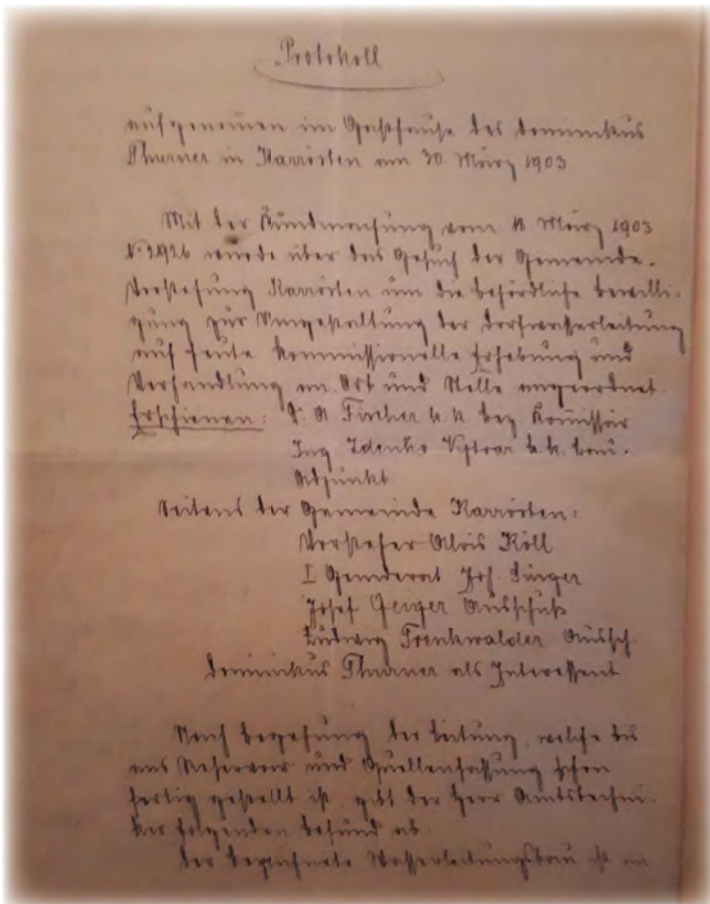 Protokoll
aufgenommen im Gasthause des Dominikus
Thurner in Karrösten am 30. März 1903
Mit der Kundmachung vom 11 März 1903
N: 2926 wurde über das Gesuch der Gemeinde-
Vorstehung Karrösten um die behördliche Bewilli-
gung zur Umgestaltung der Dorfwasserleitung
auf heute kommissionelle Erhebung und
Verhandlung an Ort und Stelle angeordnet.
Erschienen: Fischer k. k. Bez Komissär
Ing Zdenko k. k. Bau-
Adjunkt
Seitens der Gemeinde Karrösten:
Vorsteher Alois Köll
I Gemderat Joh. Singer
Josef Geiger Ausschuß
Ludwig Trenkwalder Aussch.
Dominikus Thurner als Interessent
Nach Begehung der Leitung, welche bis
aufs Reservoir und Quellenfassung schon
fertig gestellt ist, gibt der Herr Amtstechni-
ker folgenden Befund ab.
Der bezeichnete Wasserleitungsbau ist im